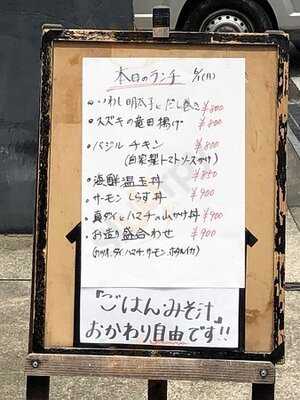 本日のランチ 5/1(月)
・いわし明太子とだし巻き ¥800
・スズキの竜田揚げ ¥800
・バジルチキン ¥800
(自家製トマトソースかけ)
・海鮮温玉丼 ¥850
・サーモンしらす丼 ¥900
・真ダイとハマチの山かけ丼 ¥900
・お造り盛合わせ ¥900
(カツオ、ダイ、ハマチ、サーモン、ホタルイカ)
『ごはん・みそ汁』
おかわり自由です!!